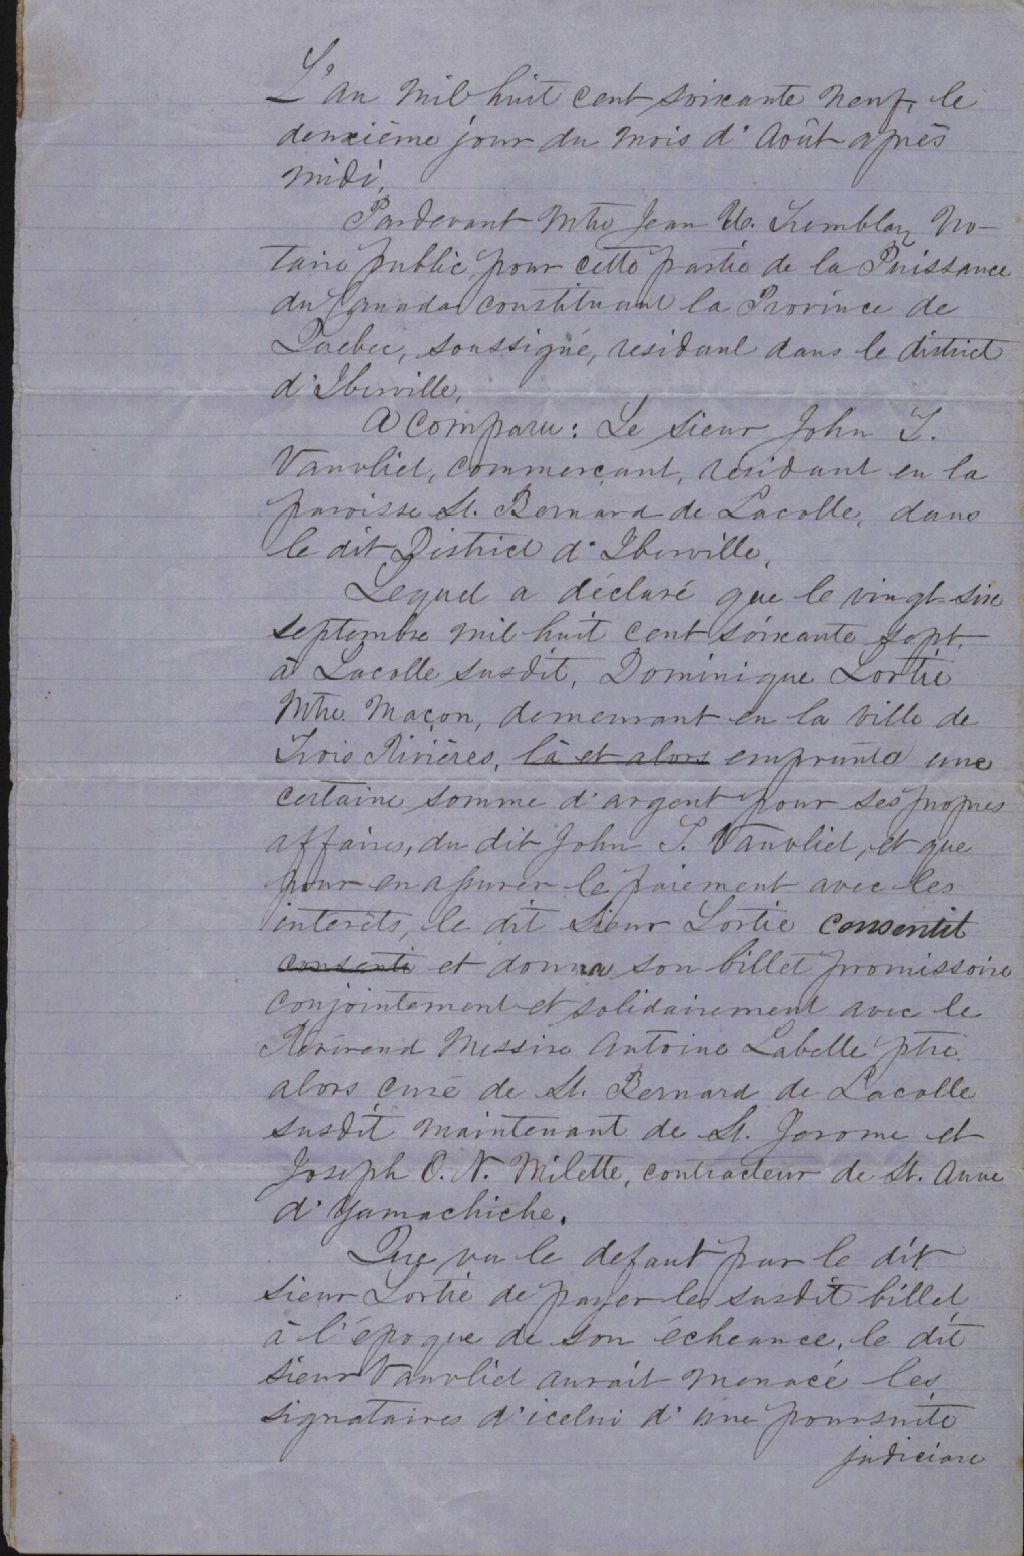 L'an mil huit cent soixante neuf, le
deuxième jour du mois d'Août après
midi,
Pardevant Mtre Jean U. Tremblay No-
taire public pour cette partie de la Puissance
du Canada constituant la Province de
Quebec, soussigné, residant dans le district
d'Iberville,
A comparu: Le Sieur John T.
Vanvliet, commerçant, residant en la
paroisse St. Bernard de Lacolle, dans
le dit District d'Iberville,
Lequel a déclaré que le vingt-six
septembre mil huit cent soixante sept,
à Lacolle susdit, Dominique Lortie
Mtre Maçon, demeurant en la ville de
Trois Rivières, là et alors emprunta une
certaine somme d'argent pour ses propres
affaires, du dit John T. Vanvliet, et que
pour en assurer le paiement avec les
interêts, le dit Sieur Lortie consentit
consenti et donna son billet promissoire
conjointement et solidairement avec le
Révérend Messire Antoine Labelle ptre
alors curé de St. Bernard de Lacolle
susdit maintenant de St. Jerome et
Joseph O. N. Milette, contracteur de St. Anne
d'Yamachiche.
Que vu le defaut par le dit
sieur Lortie de payer le susdit billet
à l'époque de son écheance, le dit
sieur Vanvliet aurait menacé les
signataires d'icelui d'une poursuite
judiciare